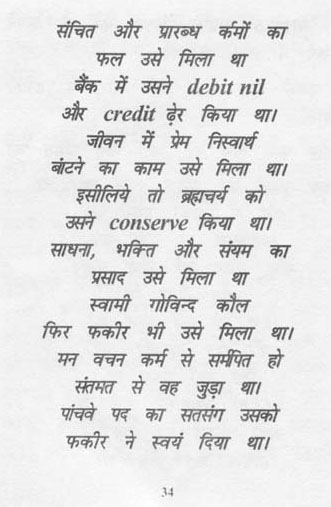 संचित और प्रारब्ध र्कमों का
फल उसे मिला था
बैंक में उसने debit nil
और credit ढ़ेर किया था।
जीवन में प्रेम निस्वार्थ
बांटने का काम उसे मिला था।
इसीलिये तो ब्रह्मचर्य को
उसने conserve किया था।
साधना, भक्ति और संयम का
प्रसाद उसे मिला था
स्वामी गोविन्द कौल
फिर फकीर भी उसे मिला था।
मन वचन कर्म से सर्मपित हो
संतमत से वह जुड़ा था।
पांचवे पद का सतसंग उसको
फकीर ने स्वयं दिया था।
34